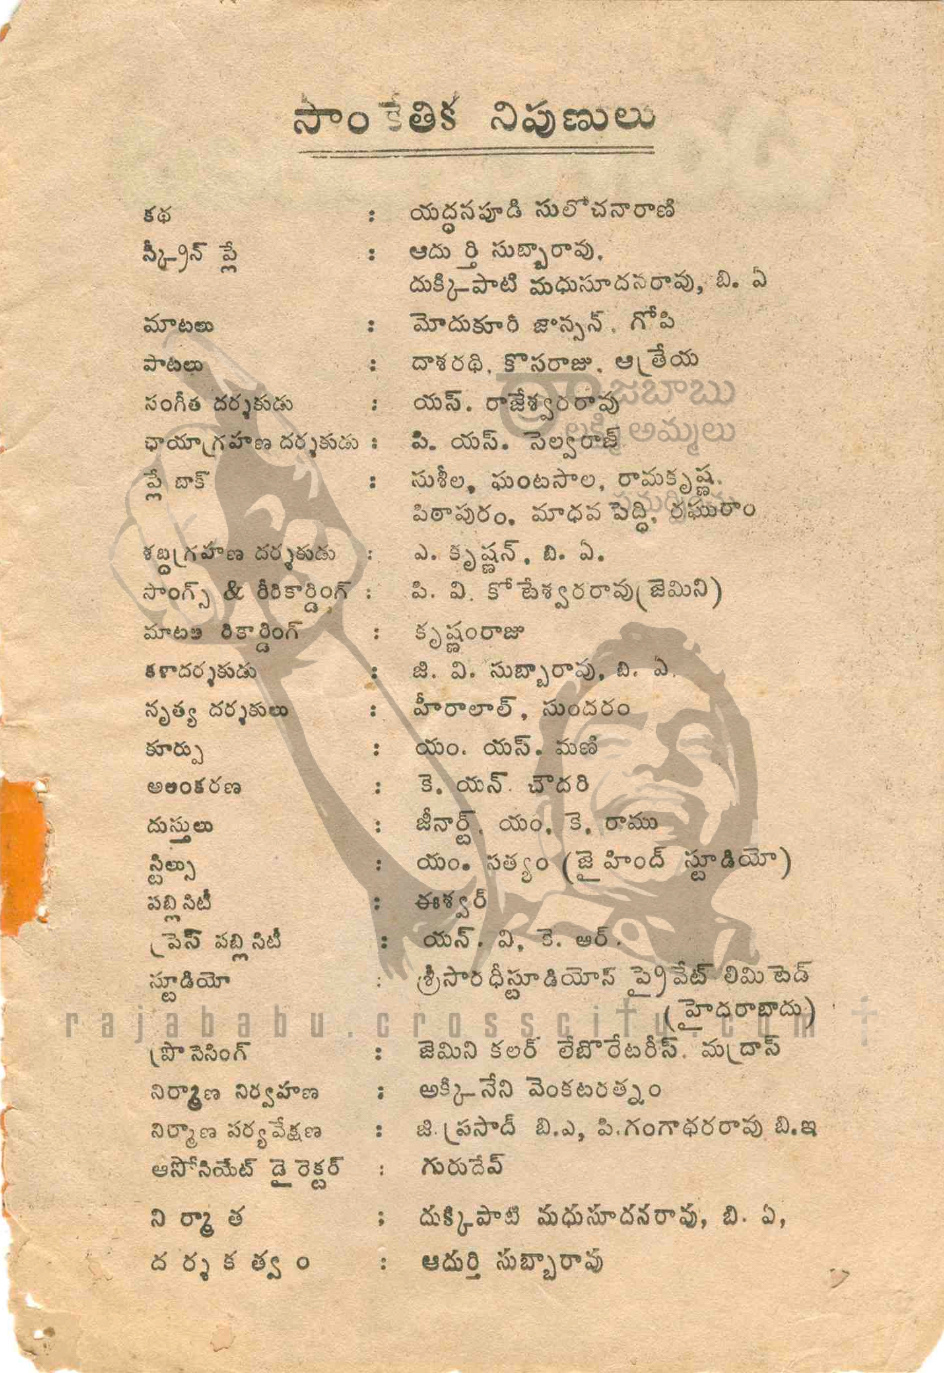 సాంకేతిక నిపుణులు
కథ : యద్ధనపూడి సులోచనారాణి
స్క్రీన్ ప్లే : ఆదుర్తి సుబ్బారావు,
దుక్కిపాటి మధుసూదనరావు, బి. ఏ
మాటలు : మోదుకూరి జాన్సన్, గోపి
పాటలు : దాశరథి, కొసరాజు, ఆత్రేయ
రాజబాబు
సంగీత దర్శకుడు : యస్. రాజేశ్వరరావు
లక్ష్మి అమ్మలు
ఛాయాగ్రహణ దర్శకుడు : పి. యస్. సెల్వరాజ్
ప్లే బాక్ : సుశీల, ఘంటసాల, రామకృష్ణ,
పిఠాపురం, మాధవపెద్ది, రఘురాం
శబ్దగ్రహణ దర్శకుడు : ఎ. కృష్ణన్, బి. ఏ.
సాంగ్స్ & రీరికార్డింగ్ : పి. వి. కోటేశ్వరరావు(జెమిని)
మాటల రికార్డింగ్ : కృష్ణంరాజు
కళాదర్శకుడు : జి. వి. సుబ్బారావు, బి. ఏ.
నృత్య దర్శకులు : హీరాలాల్, సుందరం
కూర్పు : యం. యస్. మణి
అలంకరణ : కె. యన్. చౌదరి
దుస్తులు : జీనార్ట్, యం. కె. రాము
స్టిల్సు : యం. సత్యం (జైహింద్ స్టూడియో)
పబ్లిసిటీ : ఈశ్వర్
ప్రెస్ పబ్లిసిటీ : యన్. వి, కె. ఆర్.
స్టూడియో : శ్రీసారధీస్టూడియోస్ ప్రైవేట్ లిమిటెడ్
(హైదరాబాదు)
rajababu.crosscity.com
ప్రాసెసింగ్ : జెమిని కలర్ లేబొరేటరీస్. మద్రాస్
నిర్మాణ నిర్వహణ : అక్కినేని వెంకటరత్నం
నిర్మాణ పర్యవేక్షణ : జి. ప్రసాద్ బి.ఎ, పి.గంగాధరరావు బి.ఇ
ఆసోసియేట్ డైరెక్టర్ : గురుదేవ్
నిర్మాత : దుక్కిపాటి మధుసూదనరావు, బి. ఏ,
దర్శకత్వం : ఆదుర్తి సుబ్బారావు